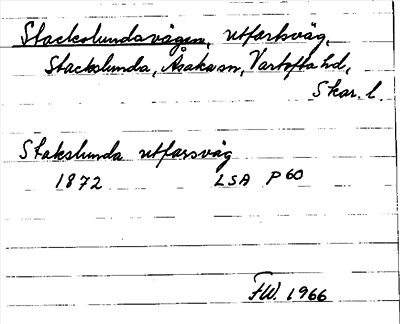 Stackslundavägen, utfartsväg,
Stackslunda, Åsaka sn, Vartofta hd,
Skar. l.
Stakslunda utfarsväg
1872 LSA P60
FW. 1966